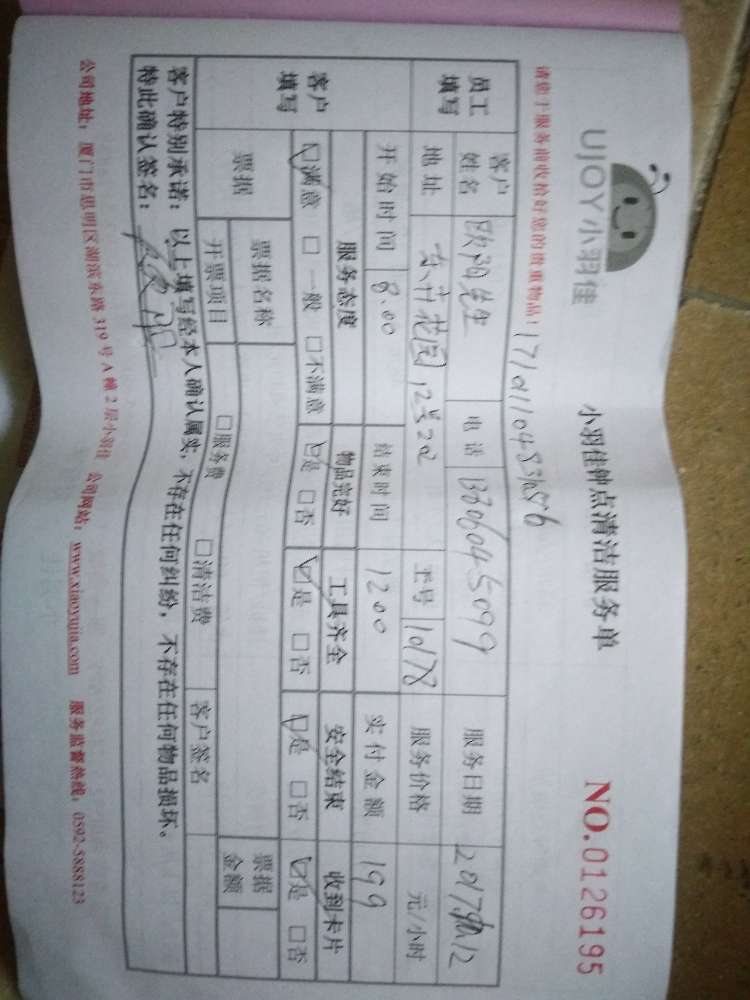 UJOY小羽佳
小羽佳钟点清洁服务单
NO.0126195
请您于服务前收拾好您的贵重物品!
员工填写 客户姓名 欧阳先生 电话 服务日期
地址 12号202 工号 10178 服务价格 元/小时
开始时间 8.00 结束时间 1200 实付金额 199
客户填写 服务态度 物品完好 工具齐全 安全结束 收到卡片
☑满意 □一般 □不满意 ☑是 □否 ☑是 □否 ☑是 □否 ☑是 □否
票据 票据名称 票据金额
开票项目 □服务费 □清洁费 客户签名
客户特别承诺：以上填写经本人确认属实，不存在任何纠纷，不存在任何物品损坏。
特此确认签名：
公司地址：厦门市思明区湖滨东路319号A幢2层小羽佳 公司网站：www.xiaoyujia.com 服务监督热线：0592-5888123